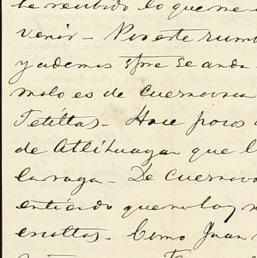 he recibido lo que me
venir - Por este rumb
y ademas spre se anda
malo es de Cuernavaca
Tetillas - Hace pocos
de Atlihuayan que l
la raya - De Cuernava
entiendo que no hay
escoltas - Como Juan